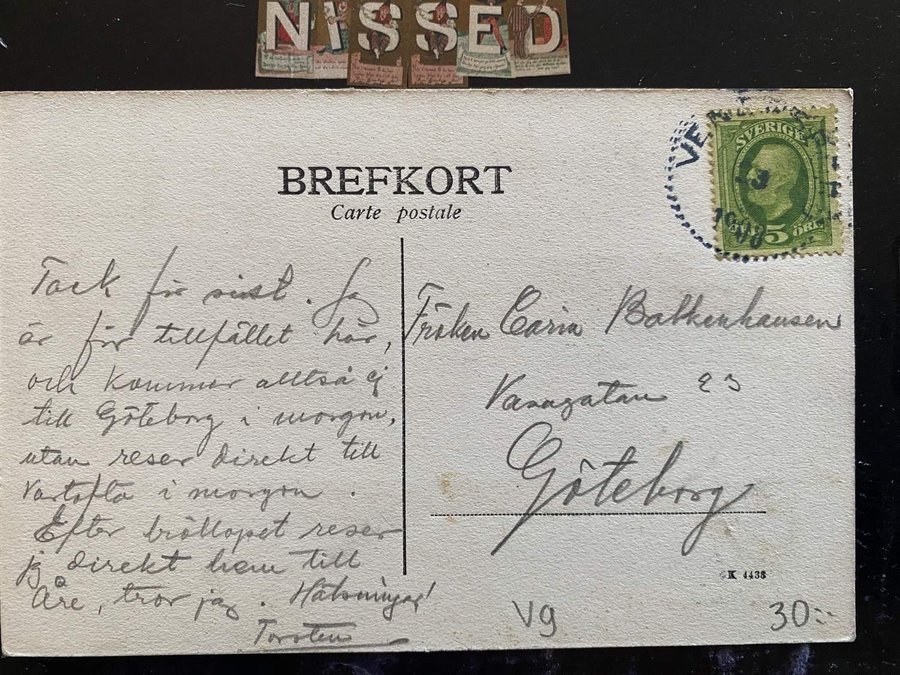 NISSED
BREFKORT
Carte postale
SVERIGE
5 ÖRE
1908
Tack för sist. Jag
är för tillfället här,
och kommer alltså ej
till Göteborg i morgon,
utan reser direkt till
Vartofta i morgon.
Efter bröllopet reser
jag direkt hem till
Åre, tror jag. Hälsningar!
Torsten
Fröken Carin
Vasagatan 23
Göteborg
K 4438
Vg
30:-